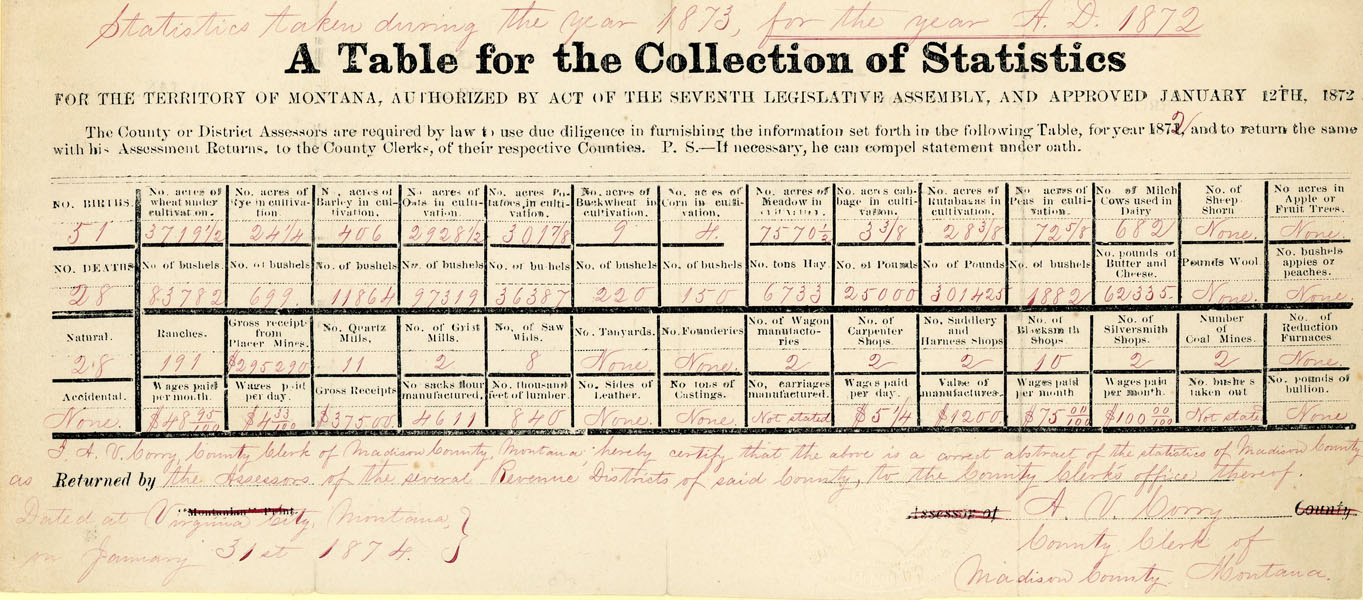 Statistics taken during the year 1873, for the year A. D. 1872
A Table for the Collection of Statistics
FOR THE TERRITORY OF MONTANA, AUTHORIZED BY ACT OF THE SEVENTH LEGISLATIVE ASSEMBLY, AND APPROVED JANUARY 12TH, 1872
The County or District Assessors are required by law to use due diligence in furnishing the information set forth in the following Table, for year 1872, and to return the same
with his Assessment Returns, to the County Clerks, of their respective Counties. P. S.—If necessary, he can compel statement under oath.
NO. BIRTHS
51
No. acres of wheat under cultivation.
3719 1/2
No. acres of Rye in cultivation.
24 1/4
No. acres of Barley in cultivation.
406
No acres of Oats in cultivation.
2928 1/2
No. acres Potatoes, in cultivation.
301 7/8
No. acres of Buckwheat in cultivation.
9
No. acres of Corn in cultivation.
4.
No. acres of Meadow in cultivation
7570 1/2
No. acres cabbage in cultivation.
3 3/8
No. acres of Rutabagas in cultivation.
28 3/8
No. acres of Peas in cultivation.
72 5/8
No. of Milch Cows used in Dairy
682
No. of Sheep Shorn
None.
No acres in Apple or Fruit Trees.
None.
NO. DEATHS
28
No. of bushels.
83782
No. of bushels
699.
No. of bushels
11864
No. of bushels
97319
No. of bushels
36387
No. of bushels
220
No. of bushels
150
No. tons Hay.
6733
No. of Pounds
25000
No. of Pounds
301425
No. of bushels
1882
No. of pounds of Butter and Cheese.
62335.
Pounds Wool
None.
No. bushels apples or peaches.
None
Natural.
28
Ranches.
191
Gross receipt from Placer Mines.
$295290
No. Quartz Mills,
11
No. of Grist Mills.
2
No. of Saw Mills.
8
No. Tanyards.
None.
No. Founderies
None.
No. of Wagon manufactories
2
No. of Carpenter Shops.
2
No. Saddlery and Harness Shops
2
No. of Blacksmith Shops.
10
No. of Silversmith Shops.
2
Number of Coal Mines.
2
No. of Reduction Furnaces.
None.
Accidental.
None.
Wages paid per month.
$48 95/100
Wages paid per day.
$4 33/100
Gross Receipts
$37500.
No sacks flour manufactured.
4611
No. thousand feet of lumber.
840
No. Sides of Leather.
None.
No tons of Castings.
None
No, carriages manufactured.
Not stated
Wages paid per day.
$5 1/4
Value of manufactures.
$1200
Wages paid per month
$75 00/100
Wages paid per month.
$100 00/100
No. bushels taken out
Not state
No. pounds of bullion.
None
I, A. V. Corry, County Clerk of Madison County, Montana, hereby certify that the above is a correct abstract of the statistics of Madison County
as Returned by the Assessors of the several Revenue Districts of said County, to the County Clerk's office thereof.
"Montanian" Print.
Assessor of A. V. Corry County
Dated at Virginia City, Montana,
on January 31st 1874.
County Clerk of
Madison County. Montana.